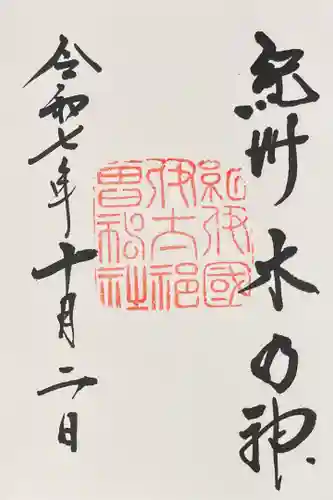 紀州水の神
紀伊國
伊太祁
曽神社
令和七年十月二日